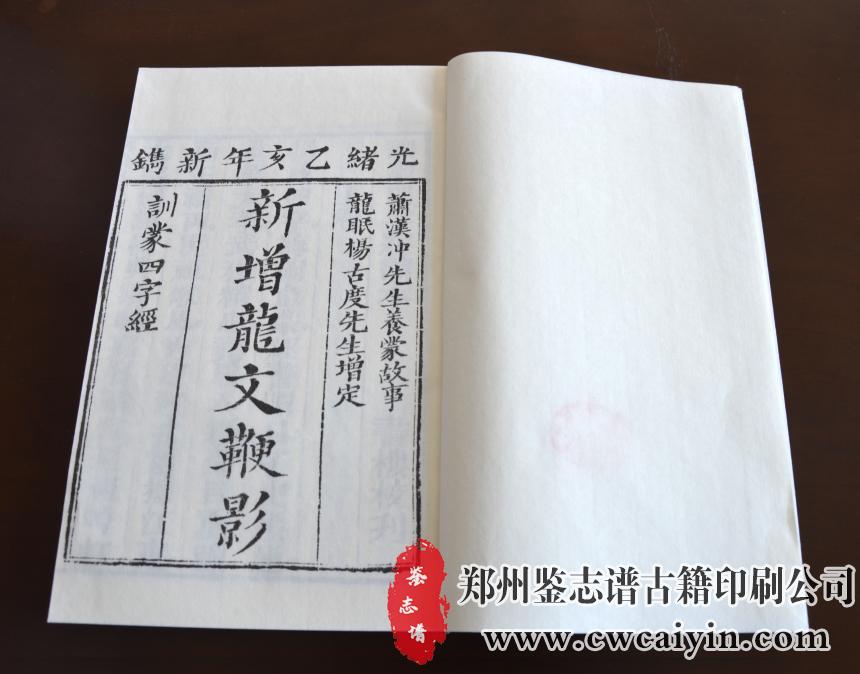 光緒乙亥年新鐫
蕭漢冲先生養蒙故事
龍眠楊古度先生增定
新增龍文鞭影
訓蒙四字經
鉴志谱
郑州鉴志谱古籍印刷公司
www.cwcaiyin.com